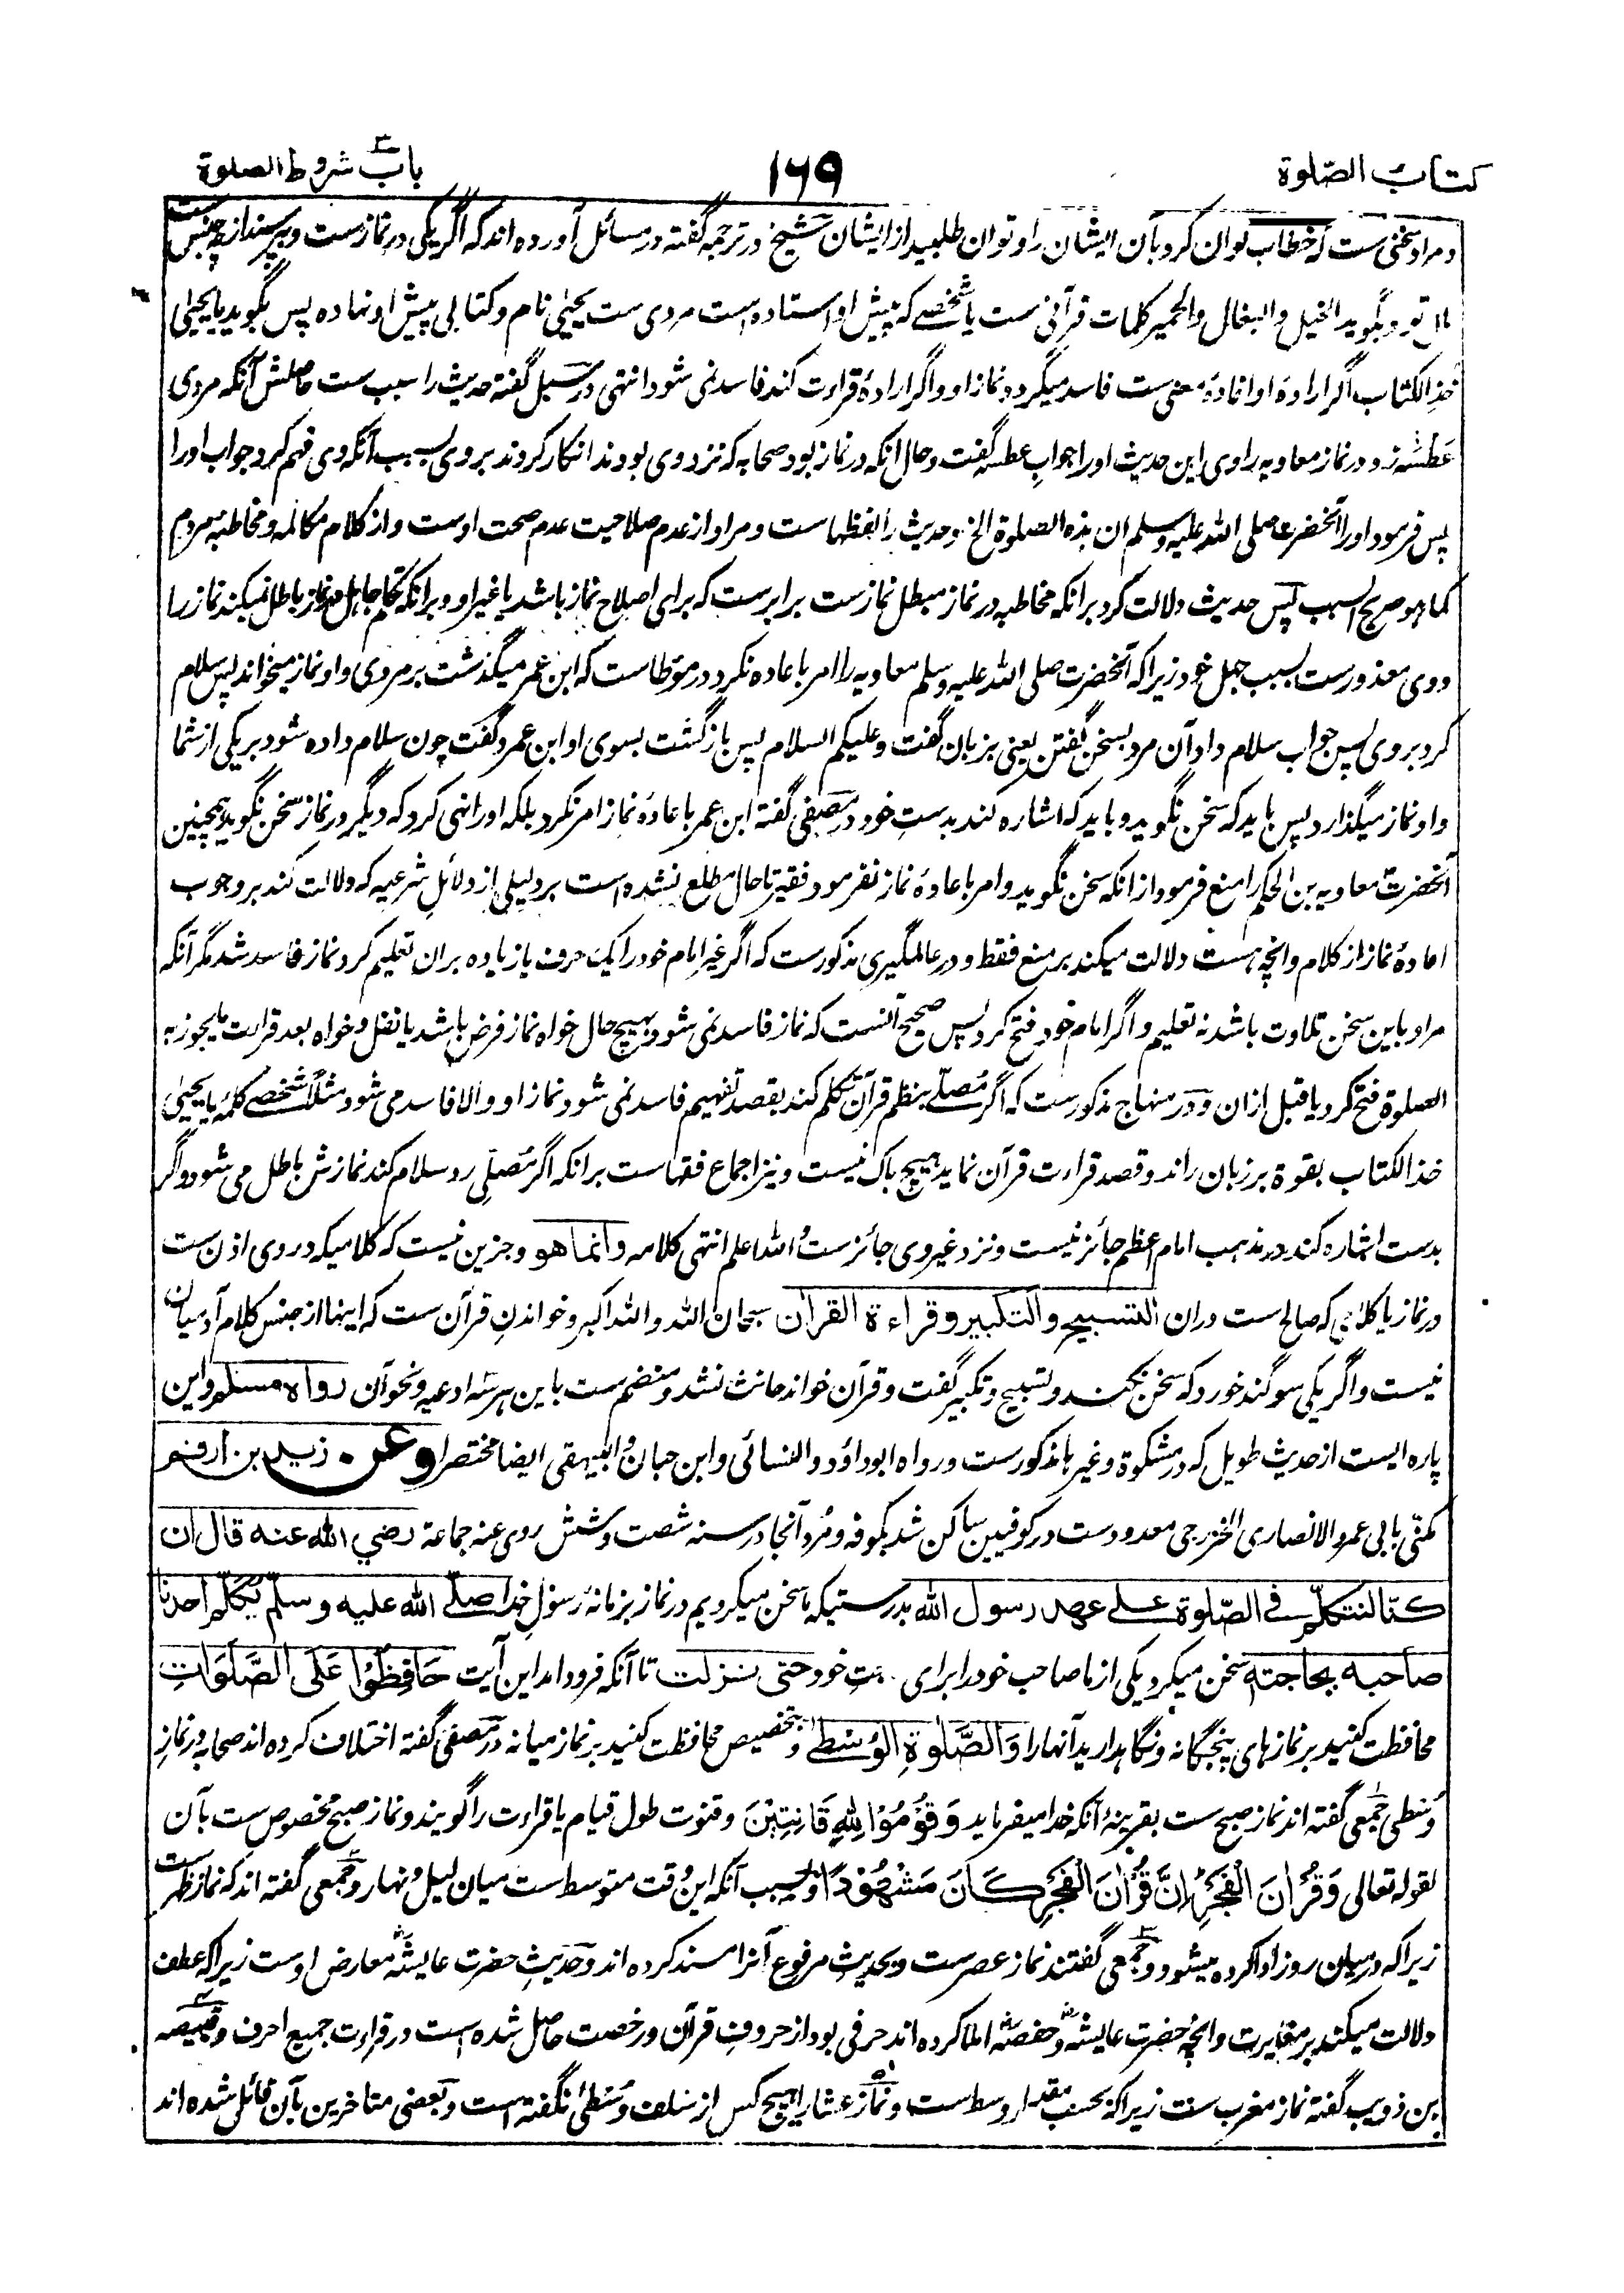 کتاب الصّلوة
۱۶۹
باب شروط الصلوة
و مراد سخنی ست که خطاب توان کرد بآن ایشان را و توان طلبید از ایشان شیخ در ترجمه گفته در مسائل آورده اند که اگر یکی در نمازست و پرسند از چه جنس ست
مال تو و بگوید الخیل والبغال والحمیر کلمات قرآنی ست یا شخصے که پیش او استاده است مردی ست یحیٰی نام و کتابی پیش او نهاده پس بگوید یا یحیٰی
خذ الکتاب اگر ارادهٔ او افادهٔ معنی ست فاسد میگردد نماز او و اگر ارادهٔ قراءت کند فاسد نمی شود انتهی در سبل گفته حدیث را سبب ست حاصلش آنکه مردی
عطسه زد در نماز معاویه راوی این حدیث او را جواب عطسه گفت و حال آنکه در نماز بود صحابه که نزد وی بودند انکار کردند بر وی بسبب آنکه وی فهم کرد جواب او را
پس فرمود او را آنحضرت صلی الله علیه وسلم ان هذه الصلوة الخ و حدیث را لفظهاست و مراد از عدم صلاحیت عدم صحت اوست و از کلام مکالمه و مخاطبهٔ مردم
کما هو صریح السبب پس حدیث دلالت کرد برانکه مخاطبه در نماز مبطل نمازست برابرست که برای اصلاح نماز باشد یا غیر او و برانکه تکلم جاهل در نماز باطل نمیکند نماز را
و وی معذورست بسبب جهل خود زیراکه آنحضرت صلی الله علیه وسلم معاویه را امر باعاده نکرد در مؤطاست که ابن عمر میگذشت بر مردی و او نماز میخواند پس سلام
کرد بر وی پس جواب سلام داد آن مرد بسخن گفتن یعنی بزبان گفت و علیکم السلام پس بازگشت بسوی او ابن عمر و گفت چون سلام داده شود بر یکی از شما
و او نماز میگذارد پس باید که سخن نگوید و باید که اشاره کند بدست خود در مصفی گفته ابن عمر باعادهٔ نماز امر نکرد بلکه او را نهی کرد که دیگر در نماز سخن نگوید همچنین
آنحضرت معاویه بن الحکم را منع فرمود از انکه سخن نگوید و امر باعادهٔ نماز نفرمود فقیر تا حال مطلع نشده است بر دلیلی از دلائل شرعیه که دلالت کند بر وجوب
اعادهٔ نماز از کلام و انچه هست دلالت میکند بر منع فقط و در عالمگیری مذکورست که اگر غیر امام خود را یک حرف یا زیاده بران تعلیم کرد نماز فاسد شد مگر آنکه
مراد باین سخن تلاوت باشد نه تعلیم و اگر امام خود فتح کرد پس صحیح آنست که نماز فاسد نمی شود بهیچ حال خواه نماز فرض باشد یا نفل و خواه بعد قراءت ما یجوز به
الصلوة فتح کرد یا قبل ازان و در منهاج مذکورست که اگر مصلّے بنظم قرآن تکلم کند بقصد تفهیم فاسد نمی شود نماز او و الا فاسد می شود مثلاً شخصے کلمهٔ یا یحیٰی
خذ الکتاب بقوة بر زبان راند و قصد قراءت قرآن نماید هیچ باک نیست و نیز اجماع فقهاست برانکه اگر مصلّی رد سلام کند نمازش باطل می شود و اگر
بدست اشاره کند در مذهب امام اعظم جائز نیست و نزد غیر وی جائزست و الله اعلم انتهی کلامه وانما هو و جزین نیست که کلامیکه در وی اذن ست
در نماز یا کلامی که صالح ست دران التسبیح والتکبیر وقراءة القرآن سبحان الله و الله اکبر و خواندن قرآن ست که اینها از جنس کلام آدمیان
نیست و اگر یکی سوگند خورد که سخن نکند و تسبیح و تکبیر گفت و قرآن خواند حانث نشد و منضم ست باین هر سه ادعیه و نحو آن رواه مسلم و این
پاره ایست از حدیث طویل که در مشکوة و غیرها مذکورست و رواه ابوداؤد والنسائی و ابن حبان والبیهقی ایضا مختصرا وعن زید بن ارقم
مکنّی بابی عمرو الانصاری الخزرجی معدودست در کوفیین ساکن شد بکوفه و مُرد آنجا در سنه شصت و شش روی عنه جماعة رضی الله عنه قال ان
کنّا لنتکلّم فی الصّلوة علی عهد رسول الله بدرستیکه ما سخن میکردیم در نماز بزمانهٔ رسول خدا صلّے الله علیه وسلّم یُکلّم احدنا
صاحبه بحاجته سخن میکرد یکی از ما صاحب خود را برای حاجت خود حتی نزلت تا آنکه فرود آمد این آیت حَافِظُوْا عَلَی الصَّلَوَاتِ
محافظت کنید بر نمازهای پنجگانه و نگاهدارید آنها را وَالصَّلٰوةِ الْوُسْطٰی و بتخصیص محافظت کنید بر نماز میانه در مصفی گفته اختلاف کرده اند صحابه در نماز
وُسطی جمعی گفته اند نماز صبح ست بقرینهٔ آنکه خدا میفرماید وَقُوْمُوْا لِلّٰهِ قَانِتِیْنَ و قنوت طول قیام یا قراءت را گویند و نماز صبح مخصوص ست بآن
لقوله تعالی وَقُرْاٰنَ الْفَجْرِ اِنَّ قُرْاٰنَ الْفَجْرِ کَانَ مَشْهُوْدًا و بسبب آنکه این وقت متوسط ست میان لیل و نهار و جمعی گفته اند که نماز ظهرست
زیراکه در میان روز ادا کرده میشود و جمعی گفتند نماز عصرست و بحدیث مرفوع آنرا مسند کرده اند و حدیث حضرت عایشه معارض اوست زیراکه عطف
دلالت میکند بر مغایرت و انچه حضرت عایشه و حفصه املا کرده اند حرفی بود از حروف قرآن و رخصت حاصل شده است در قراءت جمیع احرف و قبیصه
بن ذویب گفته نماز مغرب ست زیراکه بحسب مقدار وسط ست و نماز عشا را هیچ کس از سلف وُسطیٰ نگفته است و بعضی متاخرین بآن قائل شده اند